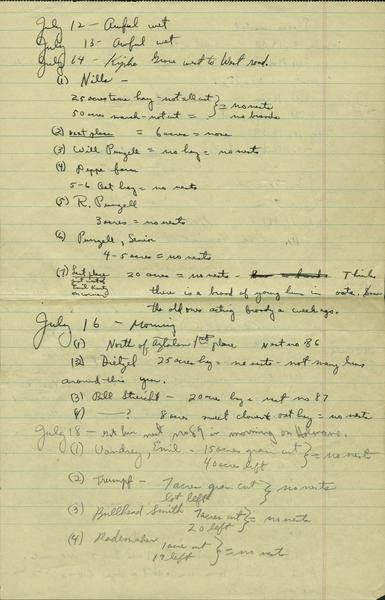 July 12 - Awful wet
July 13 - Awful wet
July 14 - Grove went to West road.
(1) Nills -
25 acres tame hay - not all cut } = no nests
50 acres marsh - not cut = no broods
(2) next place = 6 acres = none
(3) Will Pungell = no hay = no nests
(4) Deppe farm
5-6 Oat hay = no nests
(5) R. Pungell
3 acres = no nests
(6) Pungell, Senior
4-5 acres = no nests
(7) Last place 20 acres = no nests - Thinks
on corner there is a brood of young hens in oats. Saw
the old ones acting broody a week ago.
July 16 - Morning
(1) North of 1st place Nest no 86
(2) Dietzel 25 acres hay = no nests - not many hens
around this year.
(3) Bill Streich - 20 acre hay = nest no 87
(4) ----? 8 acres sweet clover + oat hay = no nests
July 18 - hen nest no 89 in morning on
(1) Vandrey, Emil - 15 acres grain cut } = no nests
40 acres left
(2) Trumpf - 7 acres grain cut } no nests
lot left
(3) Bullhead Smith 7 acres cut } = no nests
20 left
(4) Rademaker 1 acre cut } = no nest
19 left